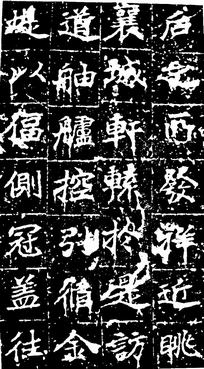 后而發祥近眺
襄城軒轅於是訪
道舳艫控引循金
堤以偪側冠盖往